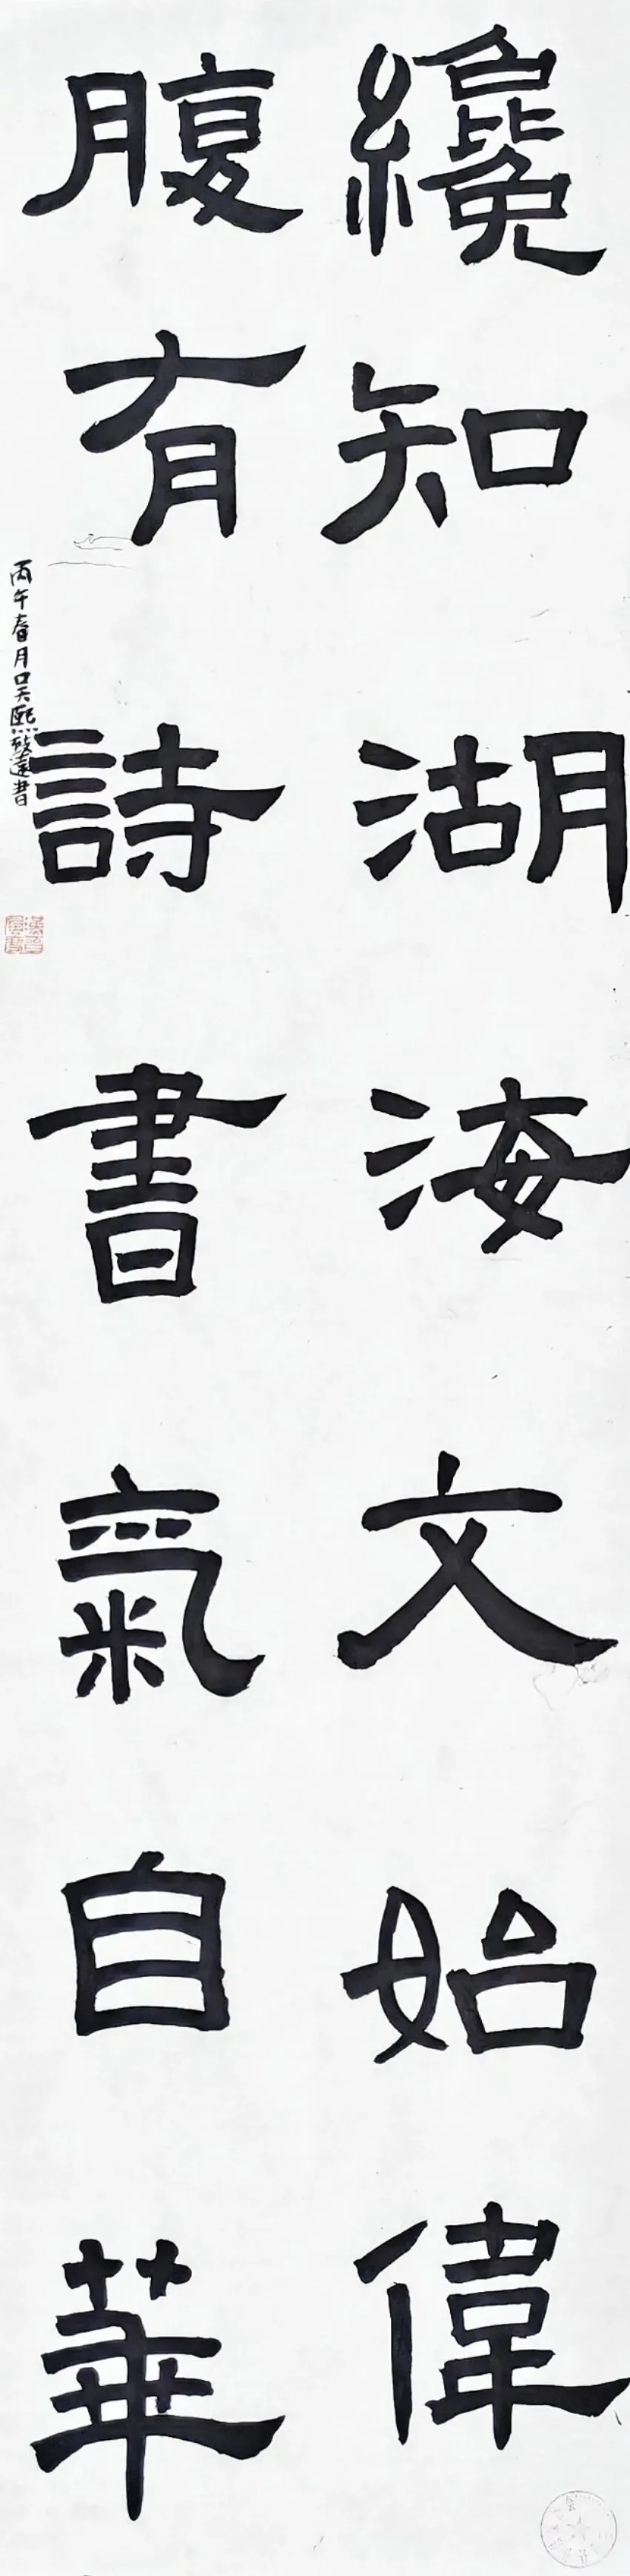 纔知湖海文始偉
腹有詩書氣自華
丙午春月吳熙啟遠書